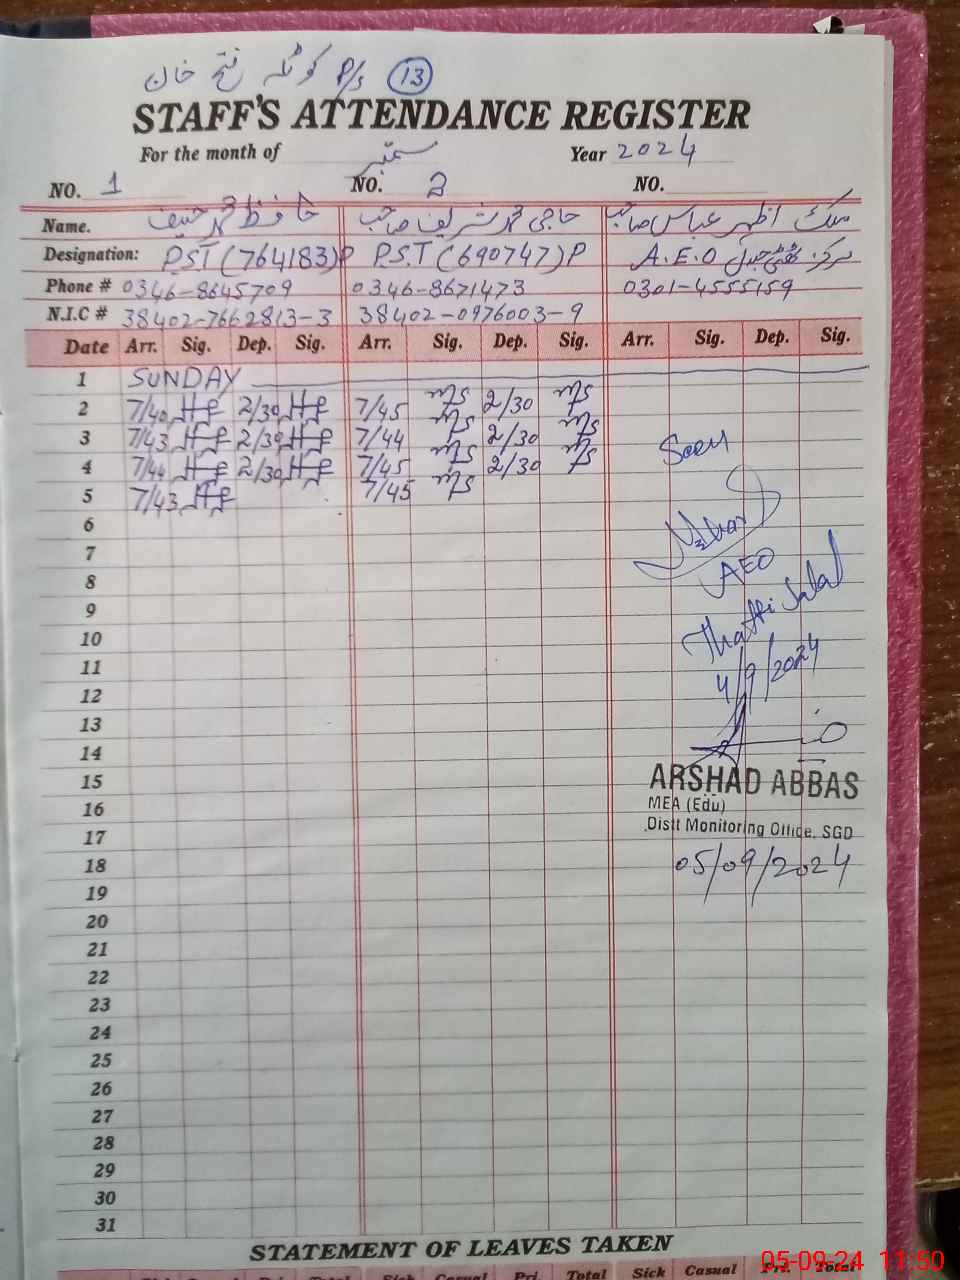 کوٹلہ فتح خان P/S 13
STAFF'S ATTENDANCE REGISTER
For the month of ستمبر Year 2024
NO. 1 NO. 2 NO.
Name. حافظ محمد حنیف حاجی محمد شریف صاحب ملک اظہر عباس صاحب
Designation: P.S.T (764183)P P.S.T (690747)P A.E.O مرکز
Phone # 0346-8645709 0346-8671473 0301-4555159
N.I.C # 38402-7662813-3 38402-0976003-9
Date Arr. Sig. Dep. Sig. Arr. Sig. Dep. Sig. Arr. Sig. Dep. Sig.
1 SUNDAY
2 7/40 2/30 7/45 2/30
3 7/43 2/30 7/44 2/30
4 7/44 2/30 7/45 2/30
5 7/43 7/45
Seen
6
7
AEO
8
9
Thatti Jalal
10
11
4/9/2024
12
13
14
15
ARSHAD ABBAS
16
MEA (Edu)
17
Distt Monitoring Office, SGD
18
05/09/2024
19
20
21
22
23
24
25
26
27
28
29
30
31
STATEMENT OF LEAVES TAKEN
Sick Casual Pri. Total Sick Casual Pri. Total Sick Casual Pri. Total
05-09-24 11:50